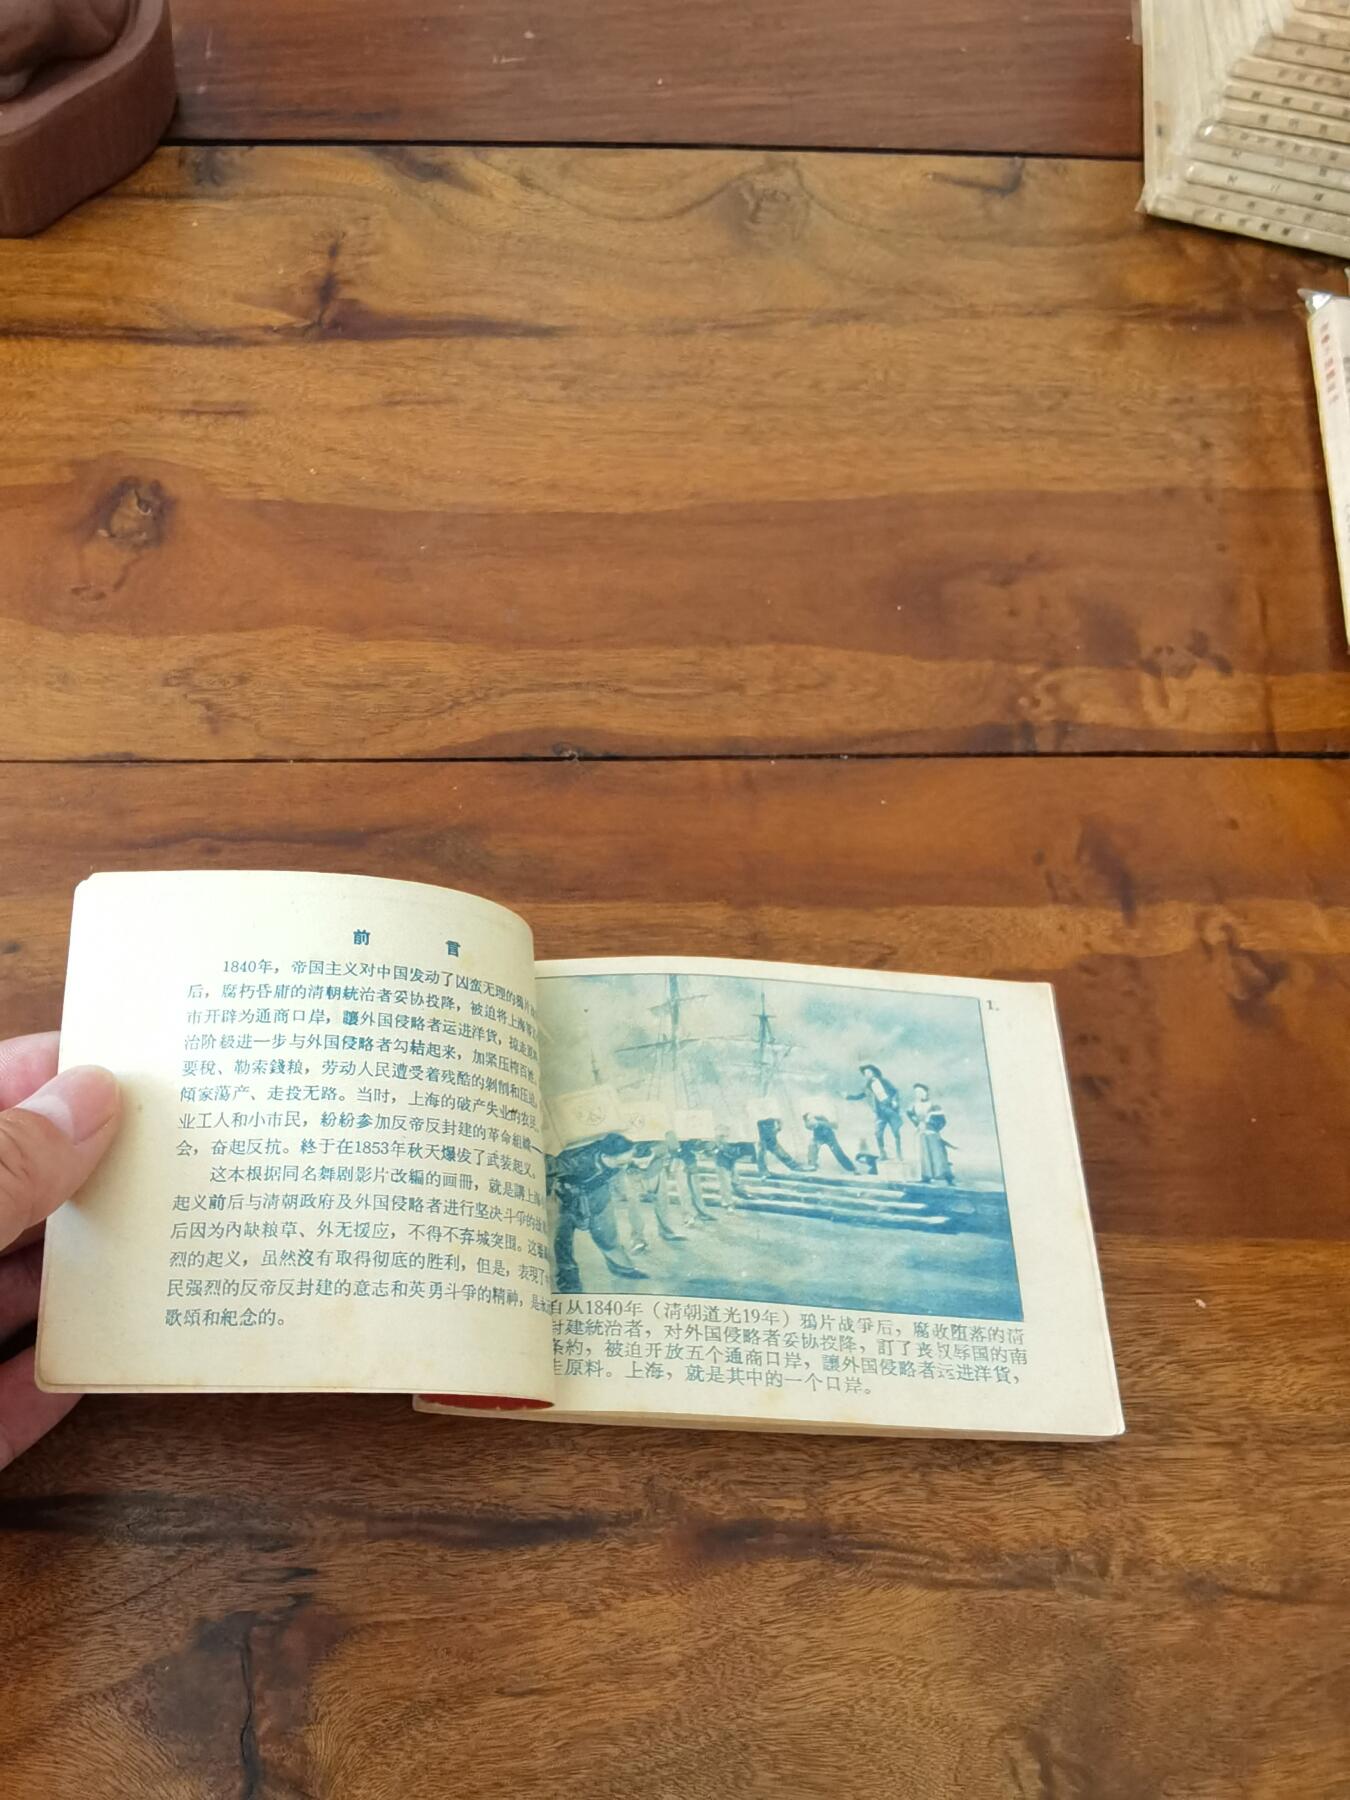 前 言
1840年，帝国主义对中国发动了凶蛮无理的鴉片
后，腐朽昏庸的清朝統治者妥协投降，被迫将上海等
市开辟为通商口岸，讓外国侵略者运进洋貨，掠走
治阶級进一步与外国侵略者勾結起来，加紧压榨百姓
要税、勒索錢粮，劳动人民遭受着残酷的剥削和压迫，
傾家蕩产、走投无路。当时，上海的破产失业的农民、
业工人和小市民，紛紛参加反帝反封建的革命組織—
会，奋起反抗。終于在1853年秋天爆发了武装起义。
这本根据同名舞剧影片改編的画冊，就是講上海
起义前后与清朝政府及外国侵略者进行坚决斗爭的
后因为內缺粮草、外无援应，不得不弃城突围。这
烈的起义，虽然沒有取得彻底的胜利，但是，表現了
民强烈的反帝反封建的意志和英勇斗爭的精神，是
歌頌和紀念的。
1.
自从1840年（清朝道光19年）鴉片战爭后，腐敗堕落的清
封建統治者，对外国侵略者妥协投降，訂了丧权辱国的南
条約，被迫开放五个通商口岸，讓外国侵略者运进洋貨，
走原料。上海，就是其中的一个口岸。